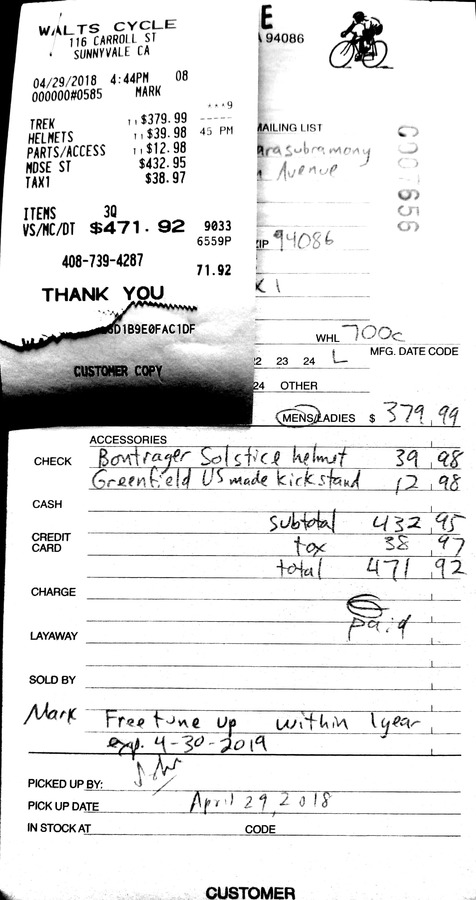 WALTS CYCLE
116 CARROLL ST
SUNNYVALE CA
04/29/2018 4:44PM 08
000000#0585 MARK
***9
TREK $379.99
HELMETS $39.98
PARTS/ACCESS $12.98
MDSE ST $432.95
TAX1 $38.97
ITEMS 3Q
VS/MC/DT $471.92
408-739-4287
THANK YOU
CUSTOMER COPY
45 PM
9033
6559P
71.92
D1B9E0FAC1DF
E
94086
MAILING LIST
arasubramony
Avenue
007656
ZIP 94086
WHL 700c
MFG. DATE CODE
22 23 24 L
24 OTHER
MENS/LADIES $ 379.99
ACCESSORIES
CHECK Bontrager Solstice helmet 39 98
Greenfield US made kickstand 12 98
CASH
subtotal 432 95
CREDIT CARD tax 38 97
total 471 92
CHARGE
paid
LAYAWAY
SOLD BY
Mark Free tune up within 1 year
exp. 4-30-2019
PICKED UP BY:
PICK UP DATE April 29, 2018
IN STOCK AT CODE
CUSTOMER